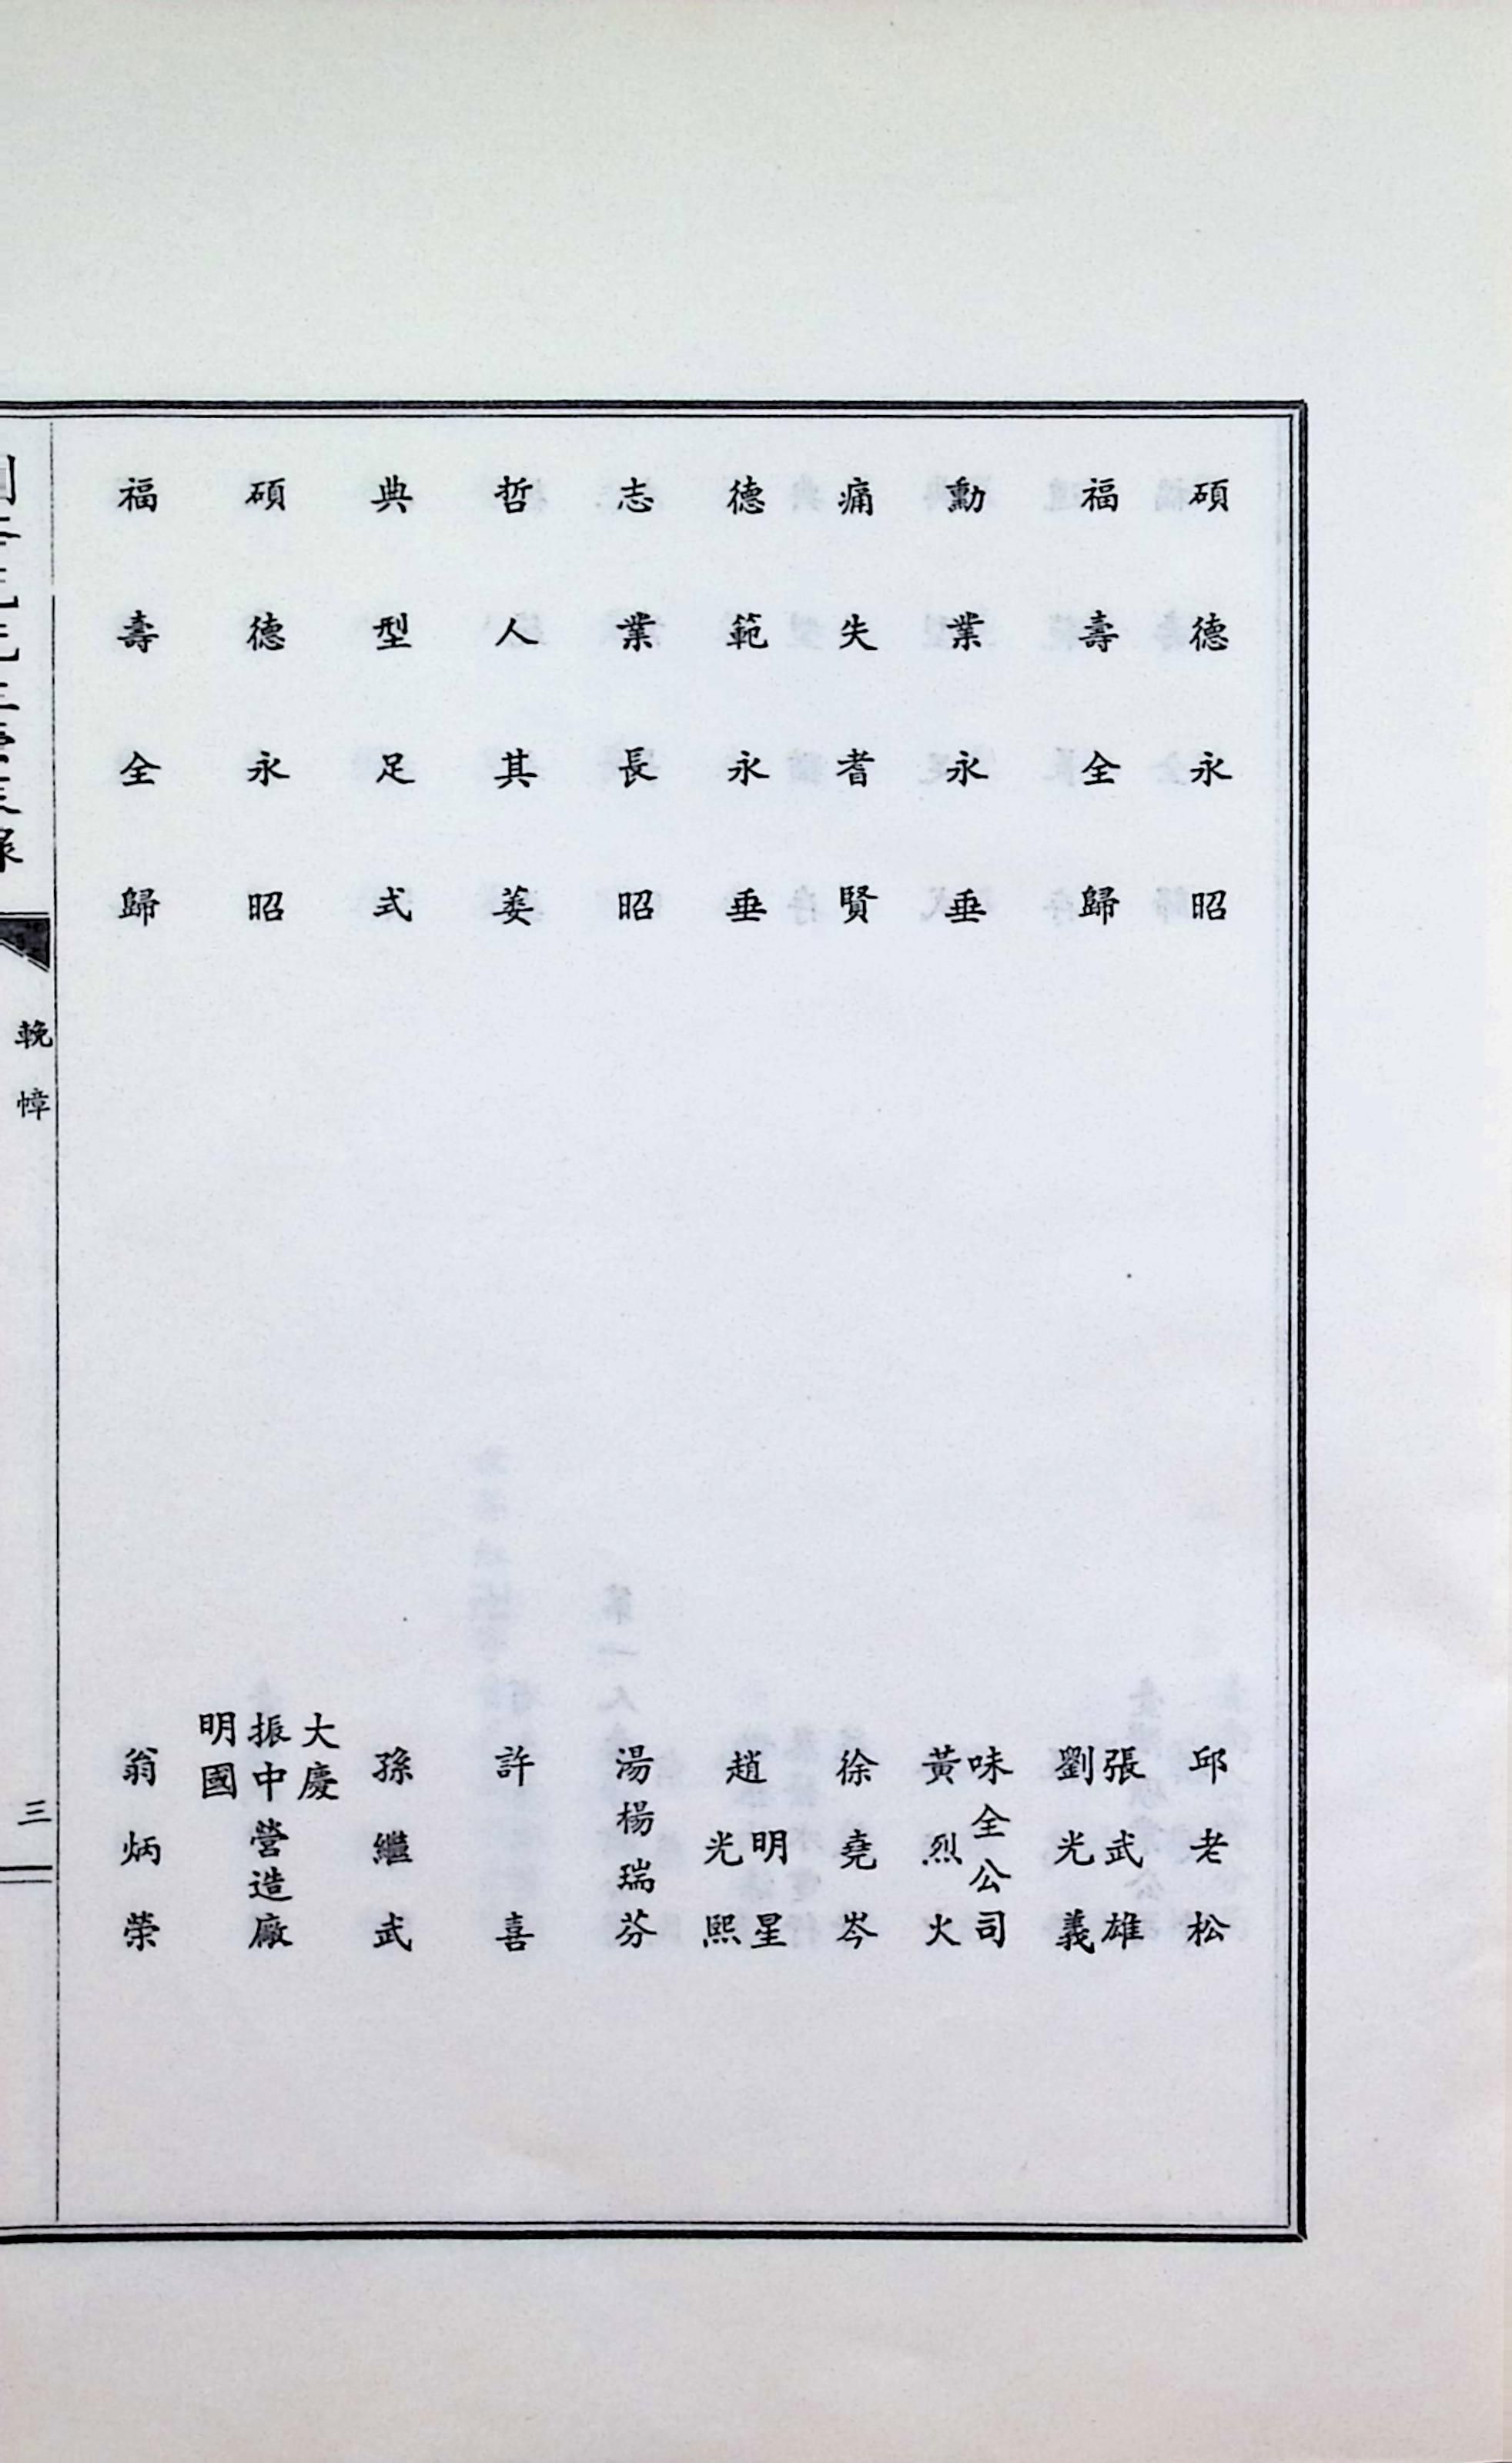 碩德永昭 邱老松
福壽全歸 張武雄 劉光義
勳業永垂 味全公司 黃烈火
痛失耆賢 徐堯岑
德範永垂 趙明星 趙光熙
志業長昭 湯楊瑞芬
哲人其萎 許喜
典型足式 孫繼武
碩德永昭 大慶 振中營造廠 明國
福壽全歸 翁炳榮
輓幛
三